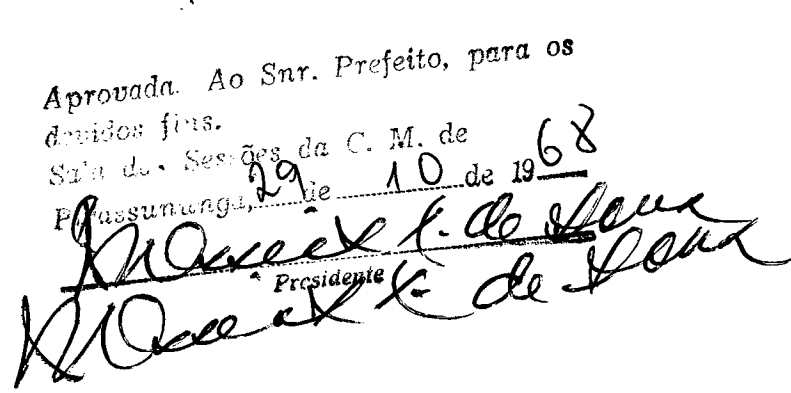 Aprovada. Ao Snr. Prefeito, para os
devidos fins.
Sala das Sessões da C. M. de
Pirassununga, 29 de 10 de 1968
de
Presidente
de